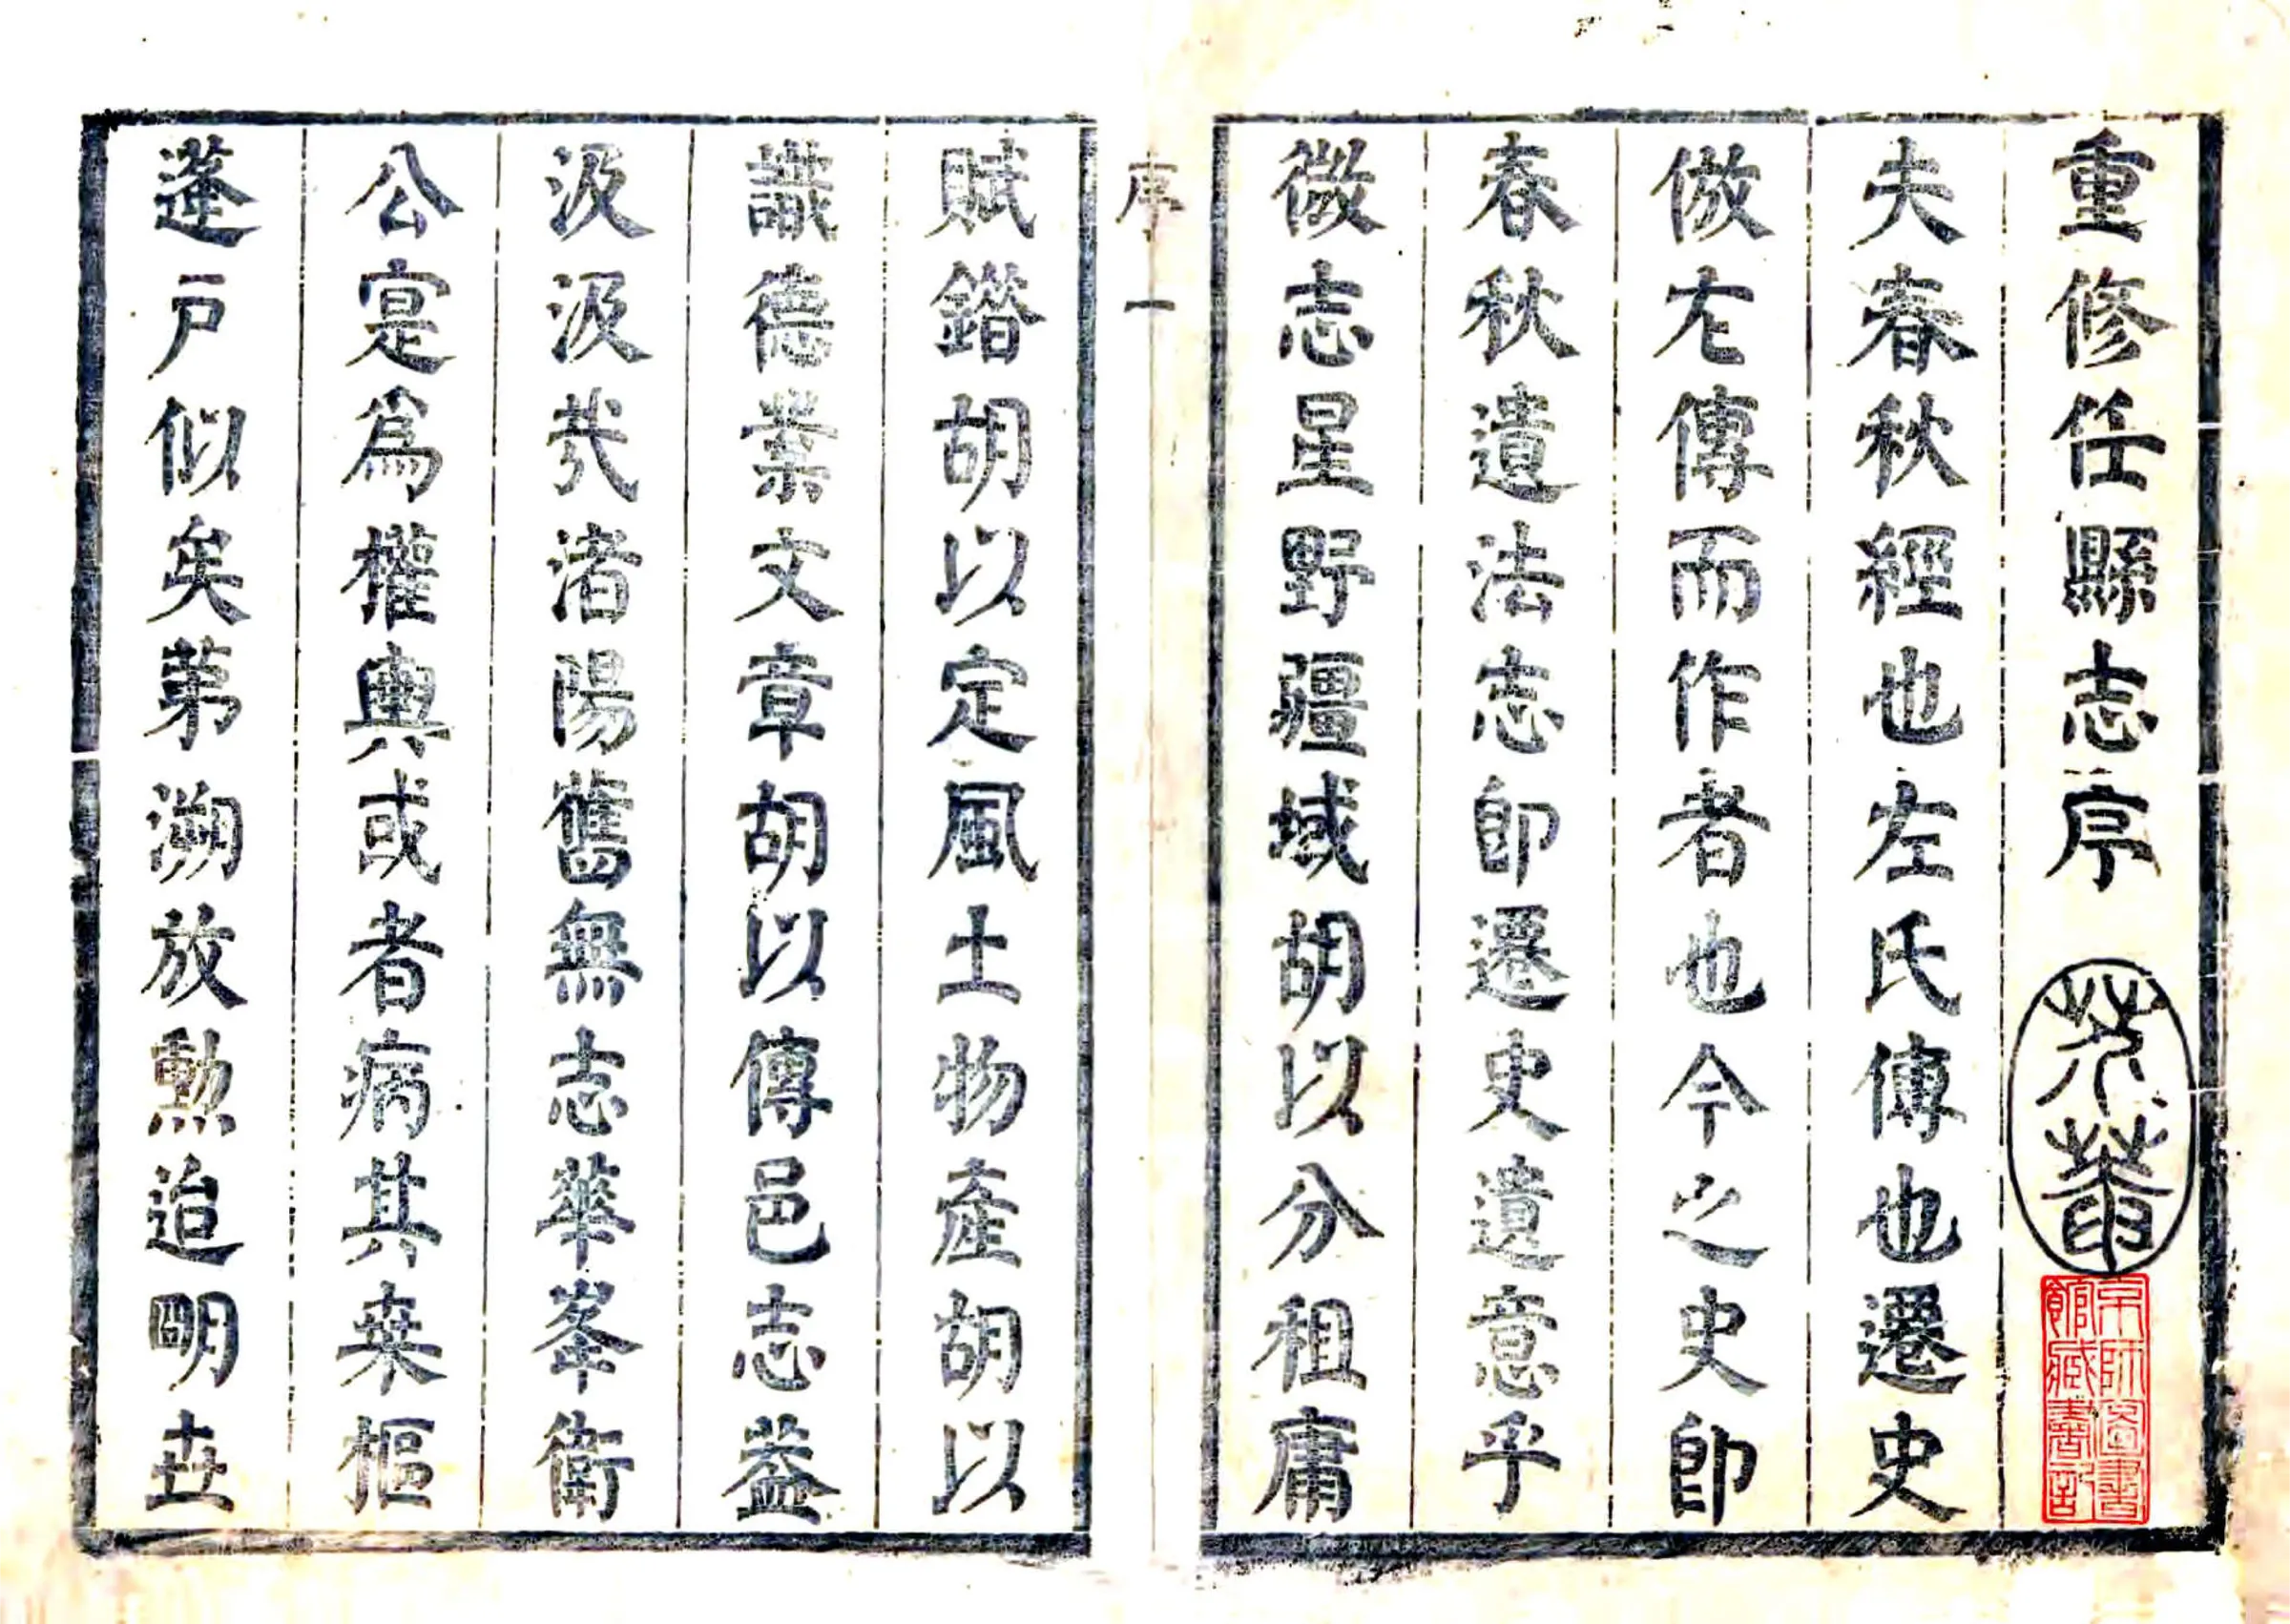 重修任縣志序
夫春秋經也左氏傳也遷史
倣左傳而作者也今之史卽
春秋遺法志卽遷史遺意乎
微志星野疆域胡以分租庸
序 一
賦鍇胡以定風土物產胡以
識德業文章胡以傳邑志益
汲汲哉渚陽舊無志華峯衛
公寔爲權輿或者病其桒樞
蓬戶似矣苐溯放勲迨明丗